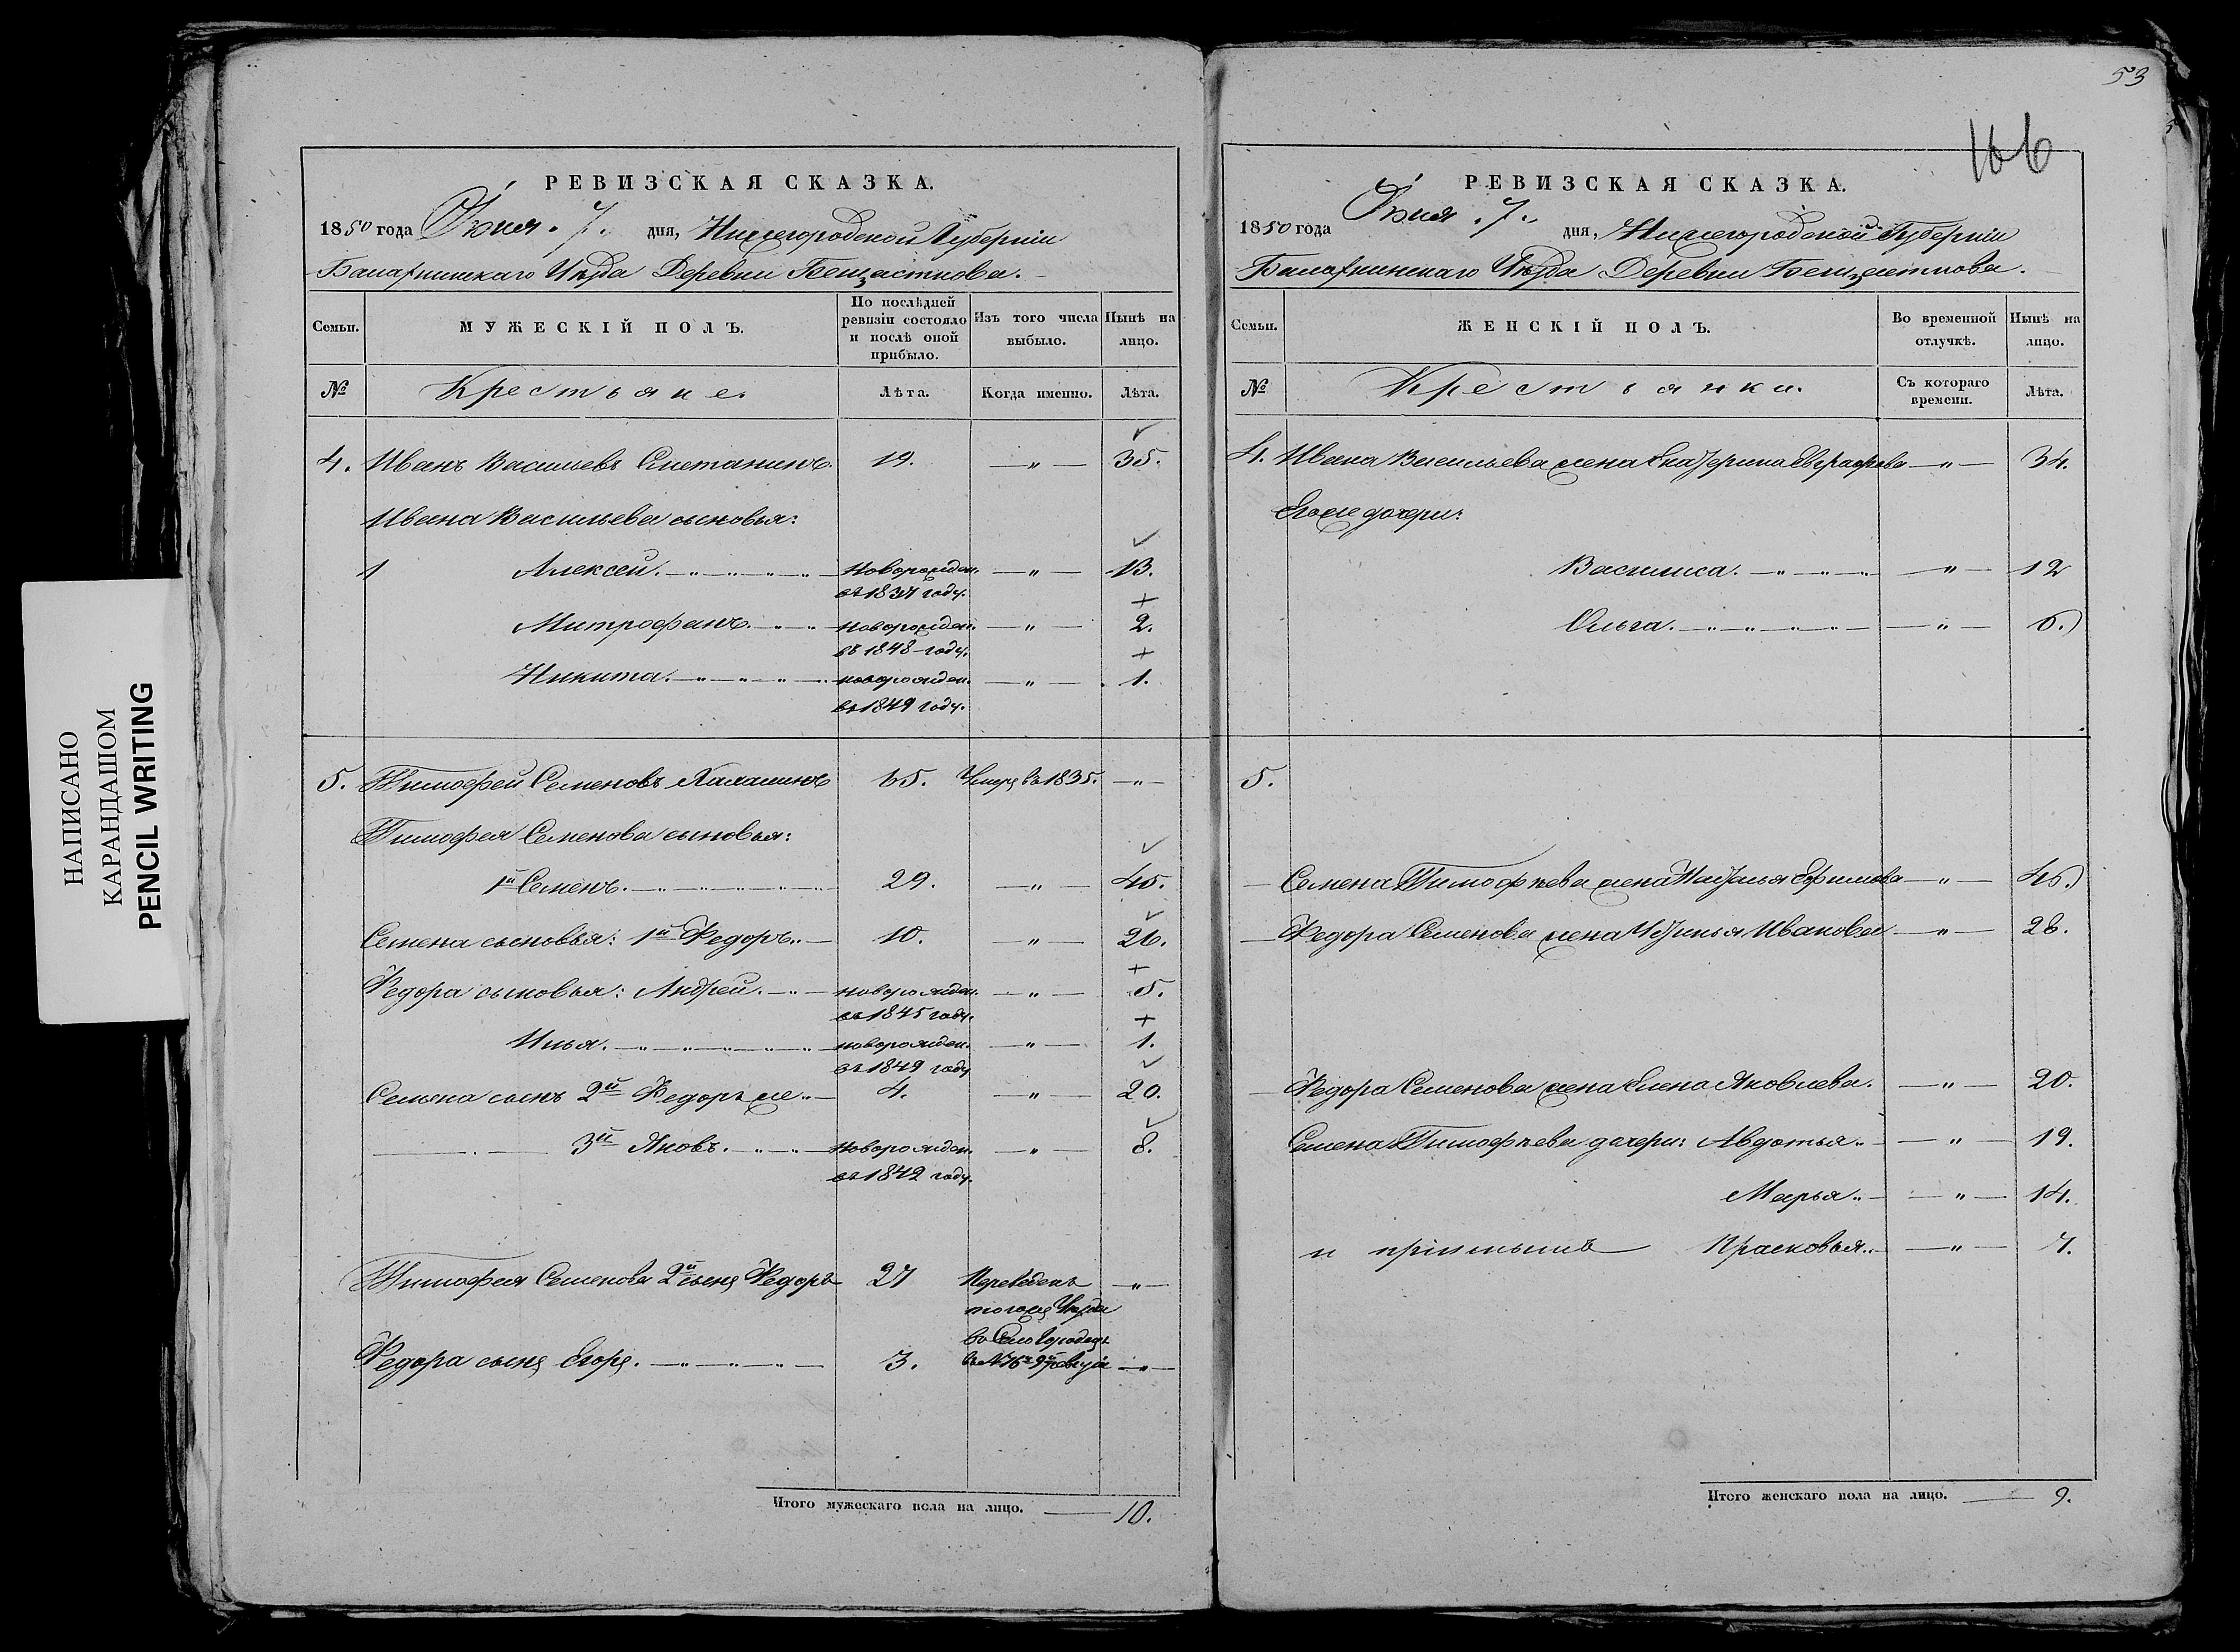 53
166
НАПИСАНО
КАРАНДАШОМ
PENCIL WRITING
РЕВИЗСКАЯ СКАЗКА.
1850 года Июня 7. дня, Нижегородской Губерніи
Балахнинскаго Уѣзда Деревни
Семьи.
МУЖЕСКІЙ ПОЛЪ.
По послѣдней ревизіи состояло и послѣ оной прибыло.
Изъ того числа выбыло.
Нынѣ на лицо.
№ Крестьяне. Лѣта. Когда именно. Лѣта.
4. Иванъ Васильевъ Сметанинъ. 19. —"— 35.
Ивана Васильева сыновья:
1 Алексей. новорожден. въ 1837 году. —"— 13.
Митрофанъ. новорожден. въ 1848 году. —"— 2.
Никита. новорожден. въ 1849 году. —"— 1.
5. Тимофей Семеновъ 65. Умеръ въ 1835. —"—
Тимофея Семенова сыновья:
1й Семенъ. 29. —"— 45.
Семена сыновья: 1й Федоръ. 10. —"— 26.
Федора сыновья: Андрей. новорожден. въ 1845 году. —"— 5.
Илья. новорожден. въ 1849 году —"— 1.
Семена сынъ 2й Федоръ же 4. —"— 20.
3й Яковъ. новорожден. въ 1842 году. —"— 8.
Тимофея Семенова 2й сынъ Федоръ 27 Переведенъ того же Уѣзда въ Село Городецъ —"—
Федора сынъ Егоръ. 3. ревизіи —"—
Итого мужескаго пола на лицо. 10.
РЕВИЗСКАЯ СКАЗКА.
1850 года Июня 7. дня, Нижегородской Губерніи
Балахнинскаго Уѣзда Деревни
Семьи.
ЖЕНСКІЙ ПОЛЪ.
Во временной отлучкѣ.
Нынѣ на лицо.
№ Крестьянки. Съ котораго времени. Лѣта.
4. Ивана Васильева жена Екатерина Евграфова —"— 34.
Его же дочери:
Василиса. —"— 12
Ольга. —"— 6.
5.
Семена Тимофѣева жена Наталья Ефимова —"— 46.
Федора Семенова жена Устинья Иванова —"— 28.
Федора Семенова жена Елена Яковлева. —"— 20.
Семена Тимофѣева дочери: Авдотья —"— 19.
Марья —"— 14.
и Прасковья —"— 7.
Итого женскаго пола на лицо. 9.